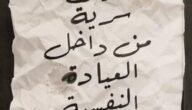 سرية
من داخل
العيادة
النفسية